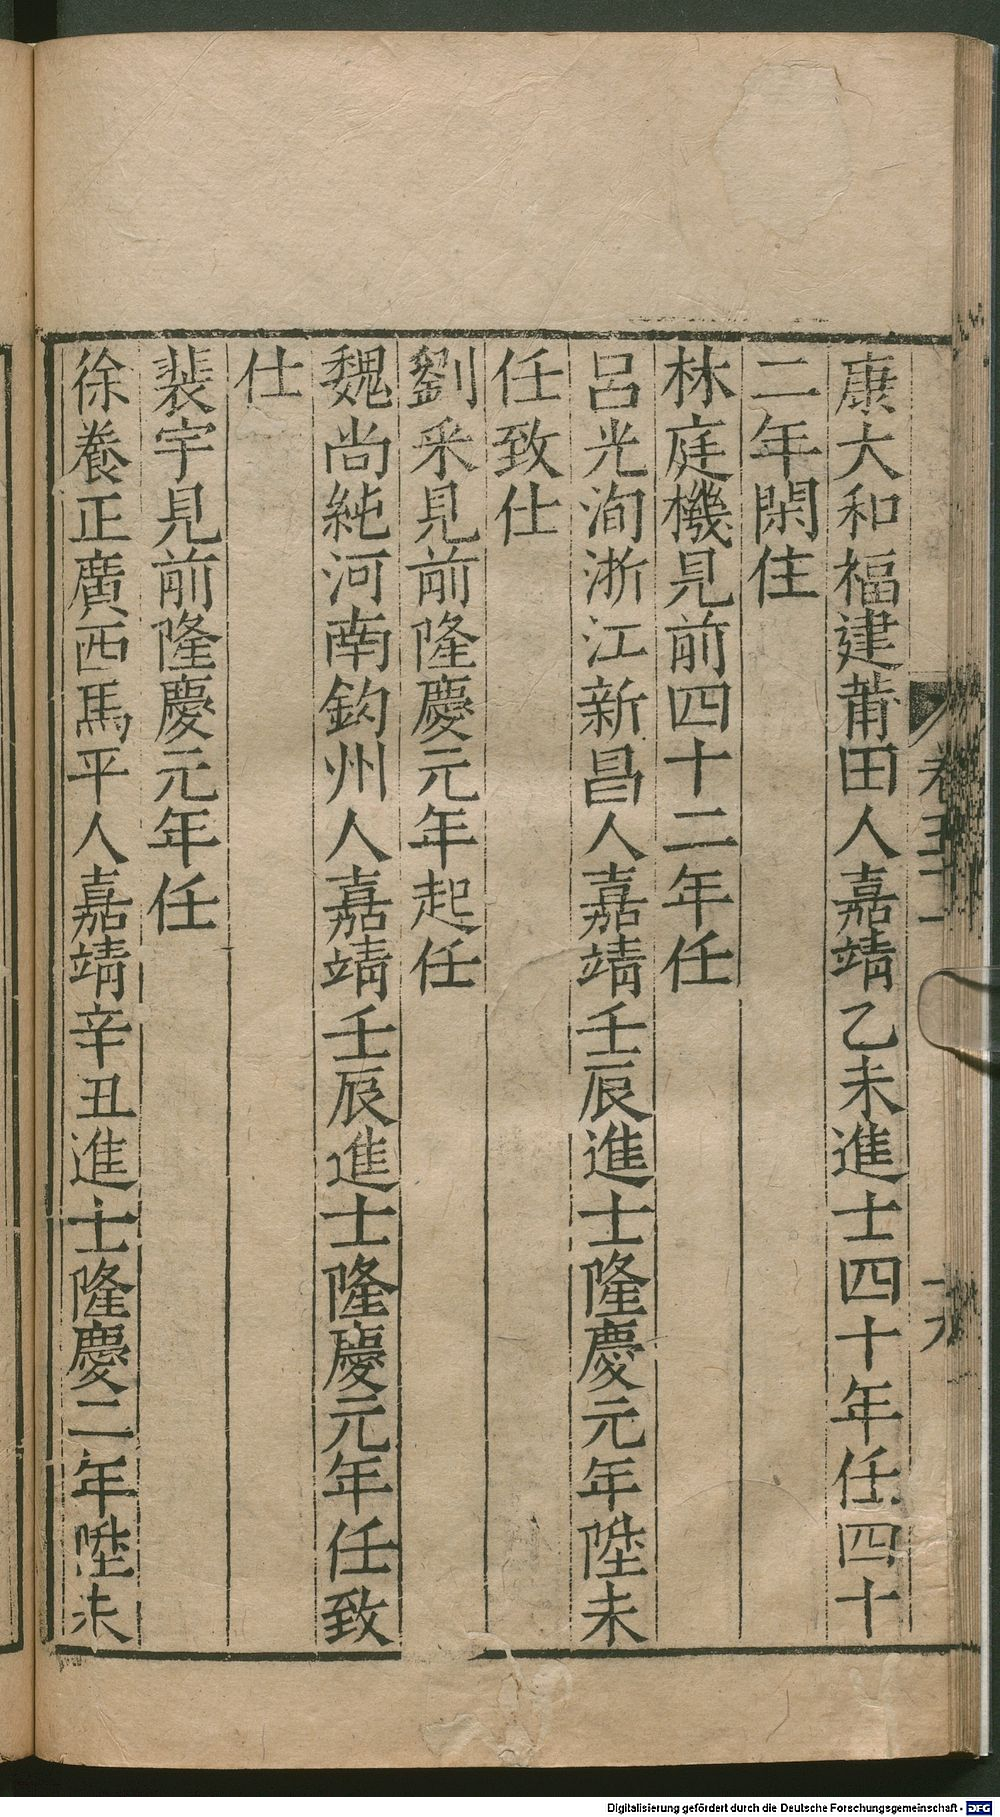 康大和福建莆田人嘉靖乙未進士四十年任四十
二年閑住
林庭機見前四十二年任
呂光洵浙江新昌人嘉靖壬辰進士隆慶元年陞未
任致仕
劉采見前隆慶元年起任
魏尚純河南鈞州人嘉靖壬辰進士隆慶元年任致
仕
裴宇見前隆慶元年任
徐養正廣西馬平人嘉靖辛丑進士隆慶二年陞未
Digitalisierung gefördert durch die Deutsche Forschungsgemeinschaft - DFG